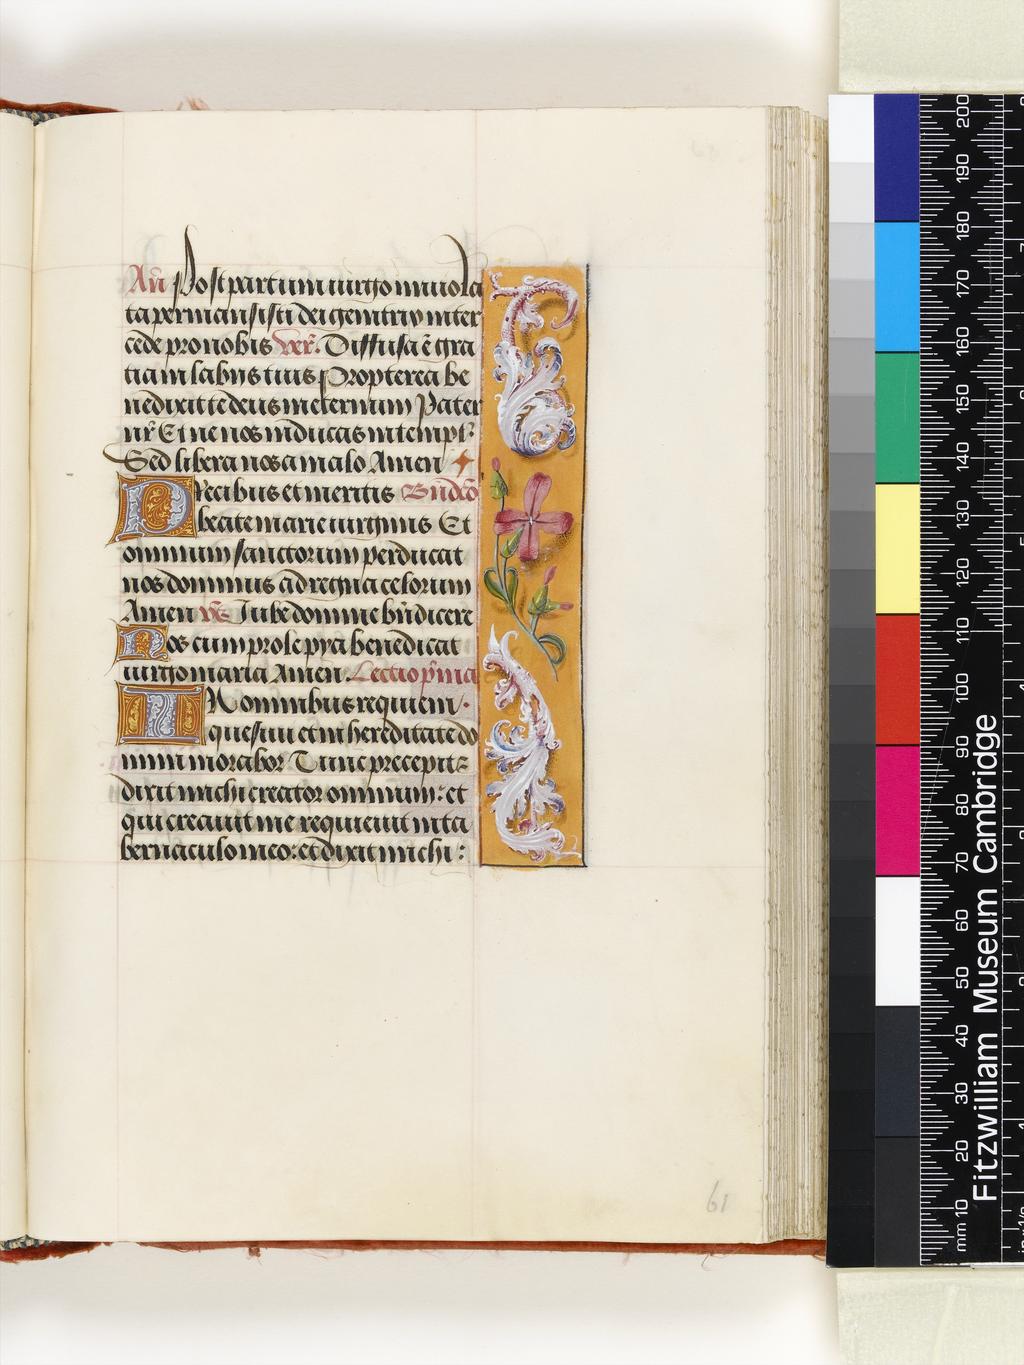 An̄ Post partum uirgo inuiola
ta permansisti dei genitrix inter
cede pro nobis Ver̄. Diffusa ē gra
tia in labiis tuis Propterea be
nedixit te deus in eternum Pater
nr̄ Et ne nos inducas in tempt
Sed libera nos a malo Amen
Precibus et meritis
beate marie uirginis Et
omnium sanctorum perducat
nos dominus ad regna celorum
Amen Iube domne bn̄dicere
Nos cum prole pya benedicat
uirgo maria Amen. Lectio p̄ma
IN omnibus requiem
quesiui et in hereditate do
mini morabor Tunc precepit
dixit michi creator omnium: et
qui creauit me requieuit in ta
bernaculo meo: et dixit michi:
61
Fitzwilliam Museum Cambridge
mm 10 20 30 40 50 60 70 80 90 100 110 120 130 140 150 160 170 180 190 200